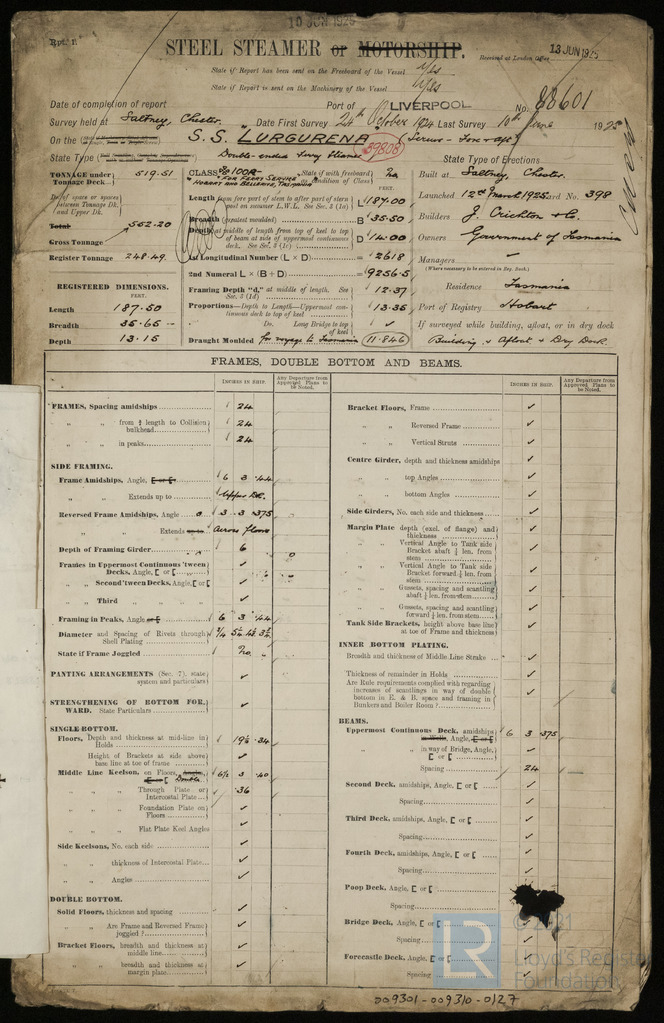 10 JUN 1925
Rpt. 1*
STEEL STEAMER or MOTORSHIP.
Received at London Office 13 JUN 1925
State if Report has been sent on the Freeboard of the Vessel Yes
State if Report is sent on the Machinery of the Vessel Yes
Date of completion of report Port of LIVERPOOL No. 88601
Survey held at Saltney, Chester. Date First Survey 24th October 1924 Last Survey 10th June 1925
On the S.S. "LURGURENA" (Screws - Fore & aft)
39808
State Type Double-ended Ferry Steamer State Type of Erections
TONNAGE under Tonnage Deck 519.51
Do. of space or spaces between Tonnage Dk. and Upper Dk.
Total
Gross Tonnage 552.20
Register Tonnage 248.49
REGISTERED DIMENSIONS.
FEET.
Length 187.50
Breadth 35.65
Depth 13.15
CLASS 100A State if with freeboard as condition of Class No
"FOR FERRY SERVICE HOBART AND BELLERIVE, TASMANIA"
FEET.
Length from fore part of stem to after part of stern post on summer L.W.L. See Sec. 3 (1a) L 187.00
Breadth (greatest moulded) B 35.50
Depth at middle of length from top of keel to top of beam at side of uppermost continuous deck. See Sec. 3 (1c) D 14.00
1st Longitudinal Number (L × D) = 2618
2nd Numeral L × (B + D) = 9256.5
Framing Depth "d," at middle of length. See Sec. 3 (1d) 12.37
Proportions—Depth to Length—Uppermost continuous deck to top of keel 13.35
Do. Long Bridge to top of keel ✓
Draught Moulded for voyage to Tasmania 11.846
Built at Saltney, Chester.
Launched 12th March 1925 Yard No. 398
Builders J. Crichton & Co.
Owners Government of Tasmania
Managers –
(Where necessary to be entered in Reg. Book.)
Residence Tasmania
Port of Registry Hobart
If surveyed while building, afloat, or in dry dock
Building & Afloat & Dry Dock
FRAMES, DOUBLE BOTTOM AND BEAMS.
INCHES IN SHIP. Any Departure from Approved Plans to be Noted.
FRAMES, Spacing amidships 24
" " from ⅗ length to Collision bulkhead 24
" " in peaks 24
SIDE FRAMING.
Frame Amidships, Angle, 6 3 .44
" " Extends up to Upper Dk.
Reversed Frame Amidships, Angle 3 3 .375
" " Extends Across floors
Depth of Framing Girder 6
Frames in Uppermost Continuous 'tween Decks, Angle, [ or [ ✓
" Second 'tween Decks, Angle, [ or [ ✓
" Third " " ✓
Framing in Peaks, Angle 6 3 .44
Diameter and Spacing of Rivets through Shell Plating
State if Frame Joggled No
PANTING ARRANGEMENTS (Sec. 7), state system and particulars ✓
STRENGTHENING OF BOTTOM FORWARD. State Particulars ✓
SINGLE BOTTOM.
Floors, Depth and thickness at mid-line in Holds 19½ .34
Height of Brackets at side above base line at toe of frame ✓
Middle Line Keelson, on Floors, Angle, [ or [ Double 6½ 3 .40
" " Through Plate or Intercostal Plate .36
" " Foundation Plate on Floors ✓
" " Flat Plate Keel Angles ✓
Side Keelsons, No. each side ✓
" " thickness of Intercostal Plate ✓
" " Angles ✓
DOUBLE BOTTOM.
Solid Floors, thickness and spacing ✓
" " Are Frame and Reversed Frame joggled? ✓
Bracket Floors, breadth and thickness at middle line ✓
" " breadth and thickness at margin plane ✓
INCHES IN SHIP. Any Departure from Approved Plans to be Noted.
Bracket Floors, Frame ✓
" " Reversed Frame ✓
" " Vertical Struts ✓
Centre Girder, depth and thickness amidships ✓
" " top Angles ✓
" " bottom Angles ✓
Side Girders, No. each side and thickness ✓
Margin Plate depth (excl. of flange) and thickness ✓
" " Vertical Angle to Tank side Bracket abaft ¼ len. from stem ✓
" " Vertical Angle to Tank side Bracket forward ¼ len. from stem ✓
" " Gussets, spacing and scantling abaft ¼ len. from stem ✓
" " Gussets, spacing and scantling forward ¼ len. from stem ✓
Tank Side Brackets, height above base line at toe of Frame and thickness ✓
INNER BOTTOM PLATING.
Breadth and thickness of Middle Line Strake ✓
Thickness of remainder in Holds ✓
Are Rule requirements complied with regarding increases of scantlings in way of double bottom in E. & B. space and framing in Bunkers and Boiler Room? ✓
BEAMS.
Uppermost Continuous Deck, amidships in Wells, Angle, [ or [ 6 3 .375
" " in way of Bridge, Angle, [ or [ ✓
Spacing 24
Second Deck, amidships, Angle, [ or [ ✓
Spacing ✓
Third Deck, amidships, Angle, [ or [ ✓
Spacing ✓
Fourth Deck, amidships, Angle, [ or [ ✓
Spacing ✓
Poop Deck, Angle, [ or [ ✓
Spacing ✓
Bridge Deck, Angle, [ or [ ✓
Spacing ✓
Forecastle Deck, Angle, [ or [ ✓
Spacing ✓
LR
© 2021
Lloyd's Register
Foundation
009301-009310-0127